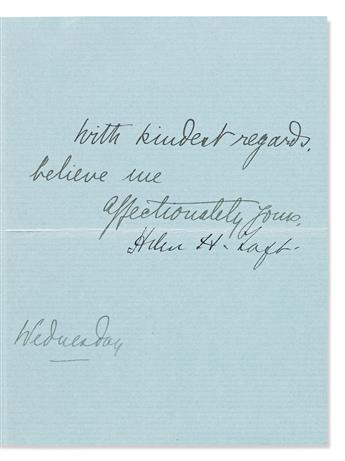 With kindest regards,
believe me
affectionately yours,
Helen H. Taft.
Wednesday